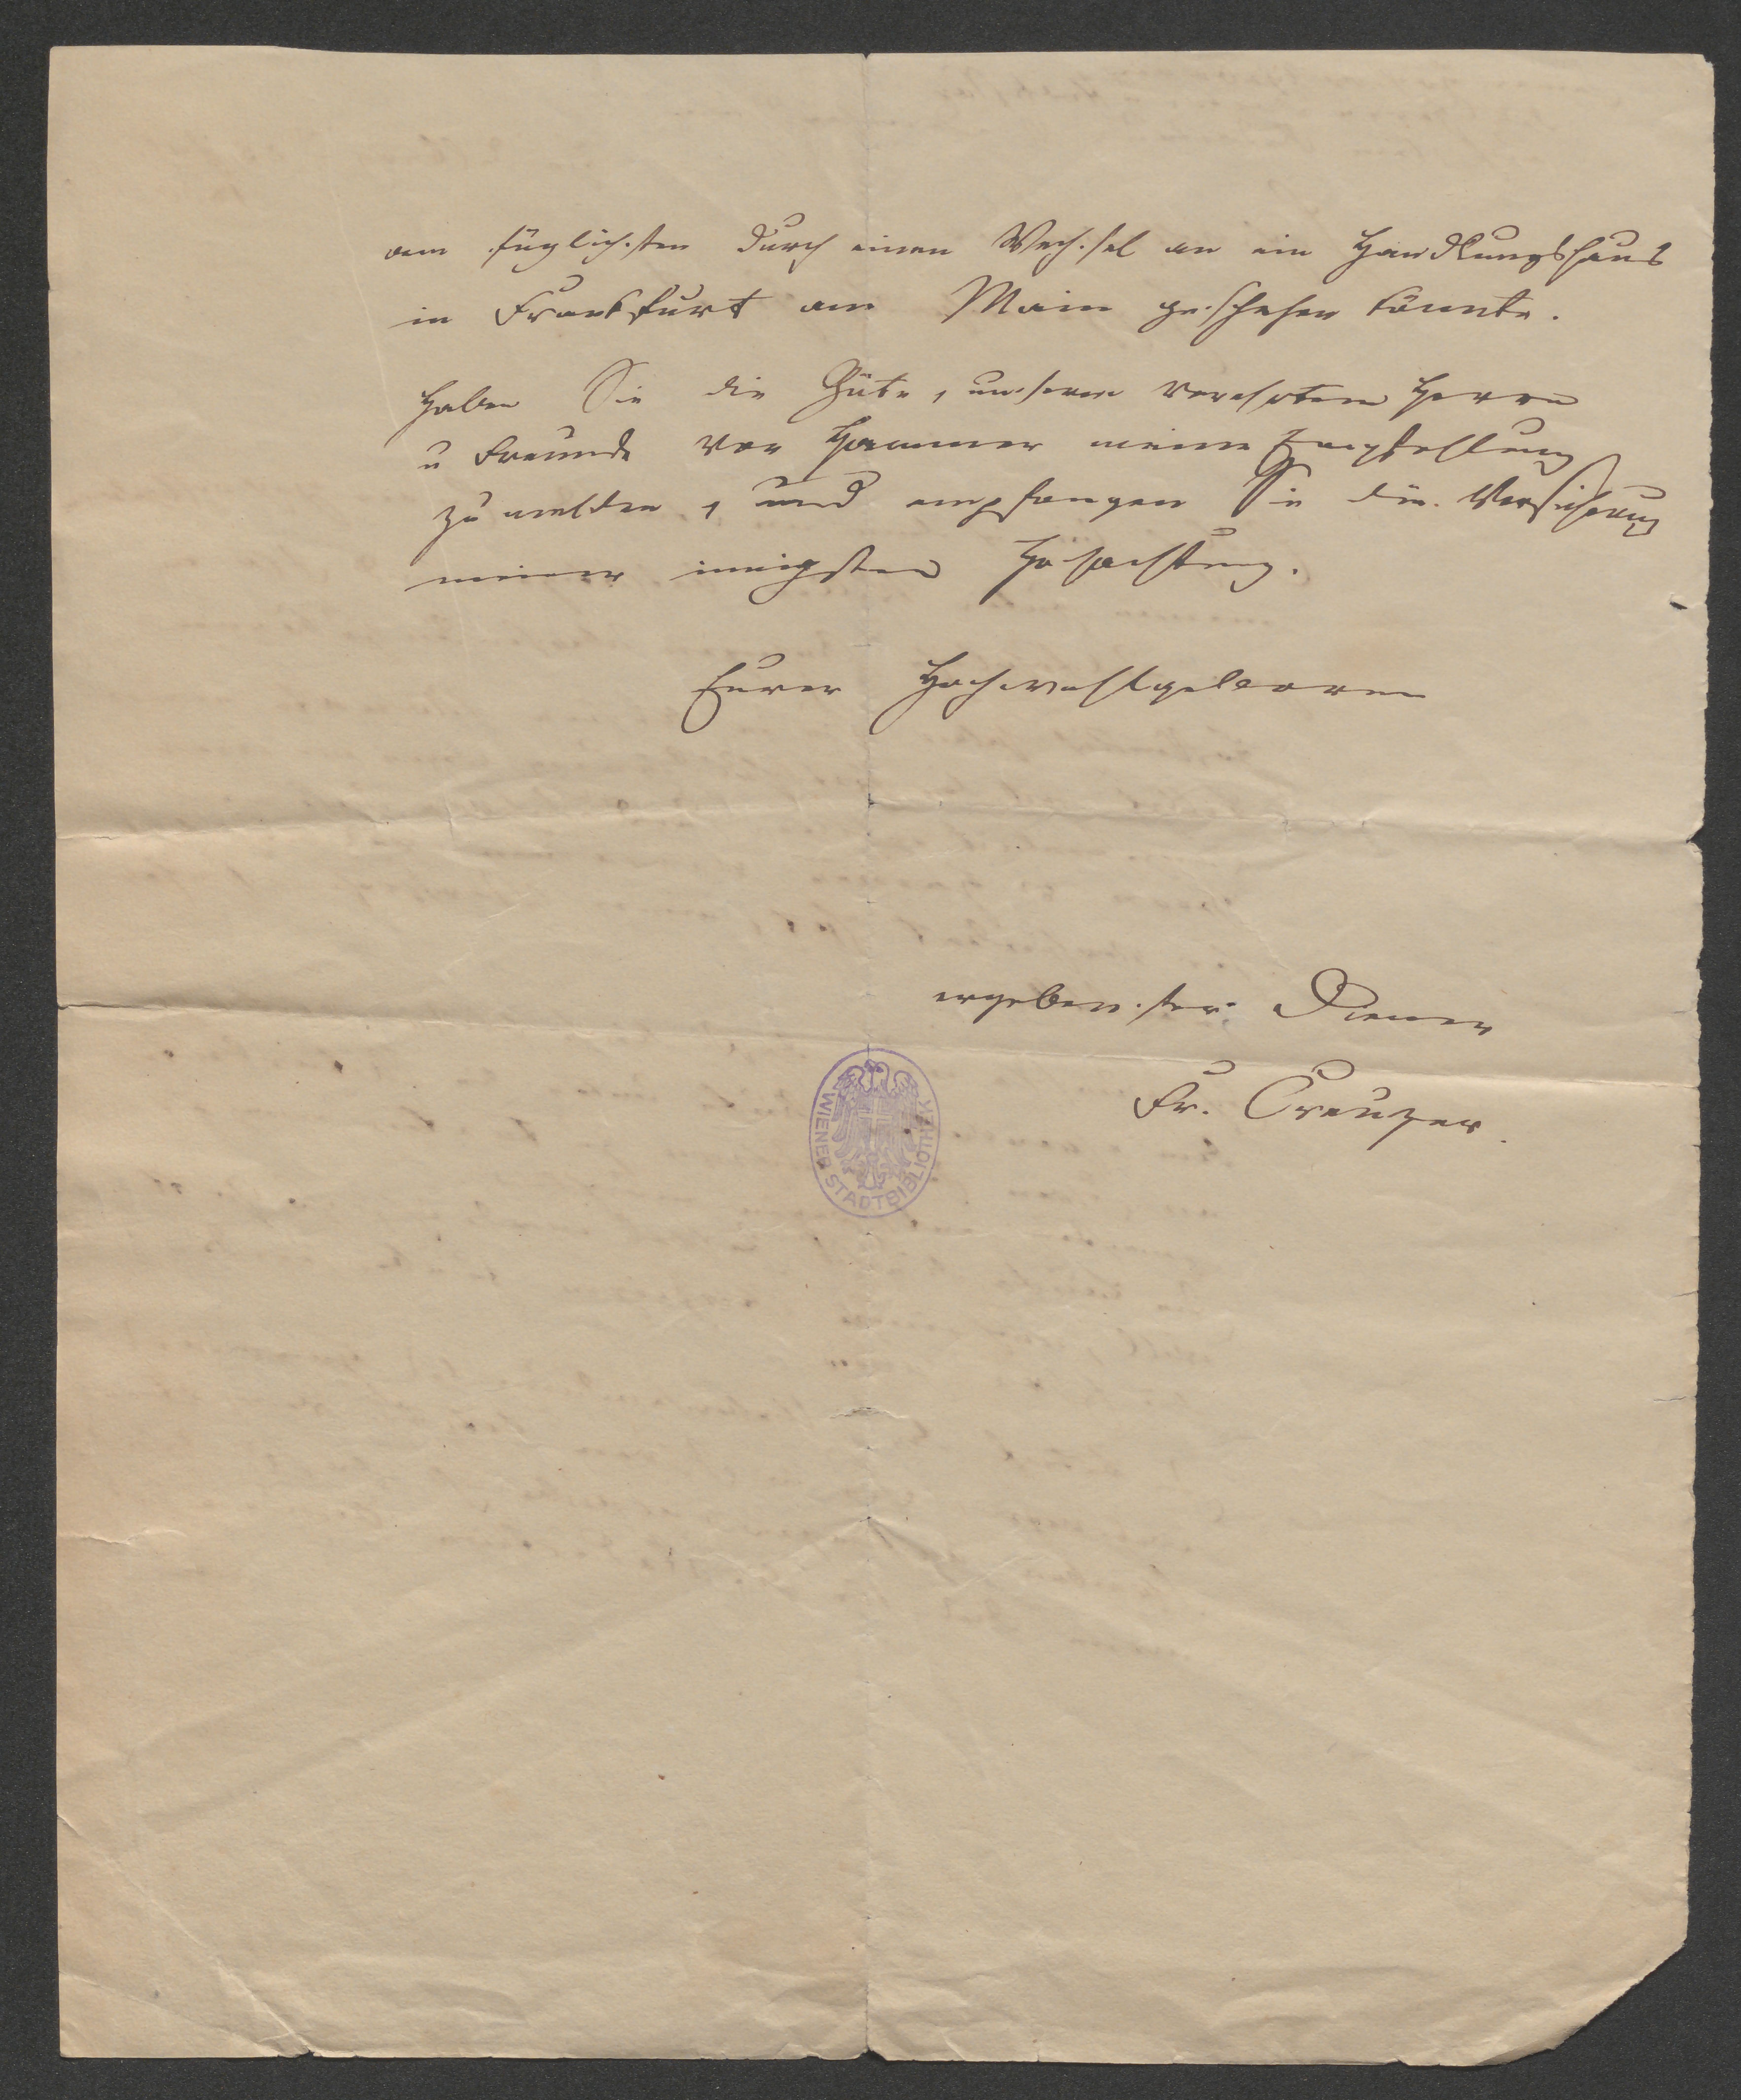 am füglichsten durch einen Wechsel an ein Handlungshaus
in Frankfurt am Main geschehen könnte.
Haben Sie die Güte, unserem verehrten Herrn
u Freunde von Hammer meine Empfehlung
zu melden, und empfangen Sie die Versicherung
meiner innigsten Hochachtung.
Eurer Hochwohlgeboren
ergebenster Diener
Fr. Creuzer.
WIENER STADTBIBLIOTHEK